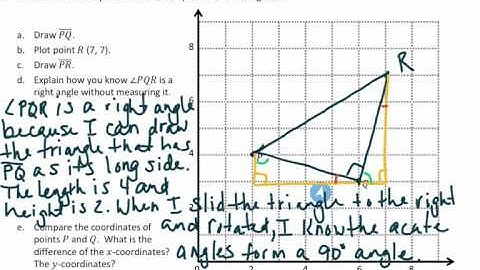 a. Draw PQ.
b. Plot point R (7, 7).
c. Draw PR.
d. Explain how you know ∠PQR is a
right angle without measuring it.
∠PQR is a right angle
because I can draw
the triangle that has
PQ as its long side.
The length is 4 and
height is 2. When I slid the triangle to the right
and rotated, I know the acate
angles form a 90° angle.
e. Compare the coordinates of
points P and Q. What is the
difference of the x-coordinates?
The y-coordinates?
R
8
6
4
2
2
4
6
8